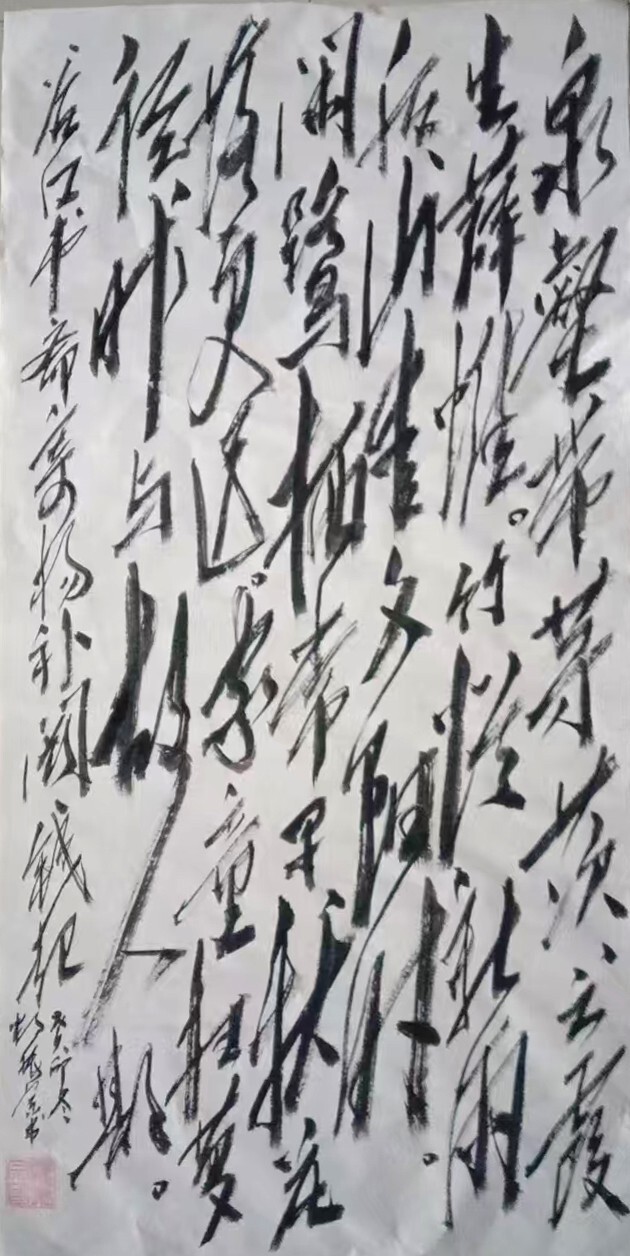 泉壑带茅茨、云霞
生薜帷。竹怜新雨
后、山爱夕阳时。
闲鹭栖常早秋花
落更迟。家童扫萝
径、昨与故人期。
谷口书斋寄杨补阙 钱起
癸卯冬